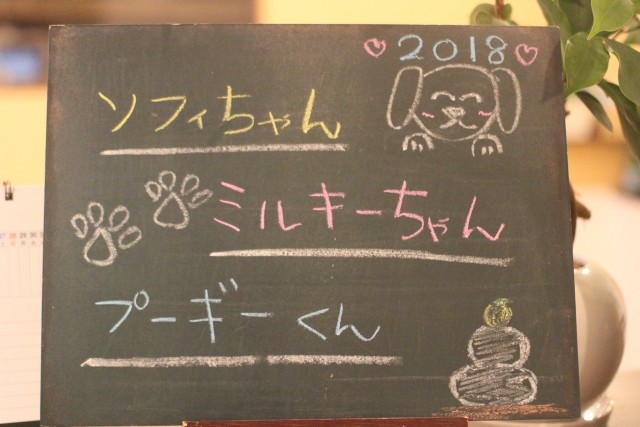 2018
ソフィちゃん
ミルキーちゃん
プーギーくん